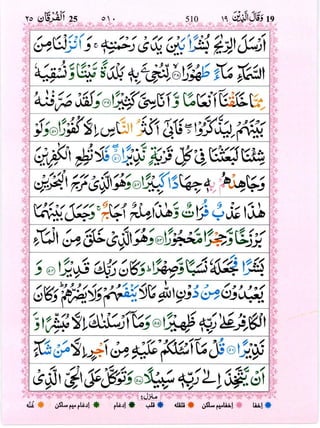 ٢٥ اَلْفُرْقَان 25 ٥١٠ 510 ١٩ وَقَالَ الَّذِيْنَ 19
اَرْسَلَ الرِّيٰحَ بُشْرًۢا بَيْنَ يَدَيْ رَحْمَتِهٖ ۚ وَ اَنْزَلْنَا مِنَ
السَّمَآءِ مَآءً طَهُوْرًا ۙ۝۴۸ لِّنُحْيِۦَ بِهٖ بَلْدَةً مَّيْتًا وَّ نُسْقِيَهٗ
مِمَّا خَلَقْنَاۤ اَنْعَامًا وَّ اَنَاسِيَّ كَثِيْرًا ۝۴۹ وَ لَقَدْ صَرَّفْنٰهُ
بَيْنَهُمْ لِيَذَّكَّرُوْا ۖ فَاَبٰۤى اَكْثَرُ النَّاسِ اِلَّا كُفُوْرًا ۝۵۰ وَ لَوْ
شِئْنَا لَبَعَثْنَا فِيْ كُلِّ قَرْيَةٍ نَّذِيْرًا ۖ۝۵۱ فَلَا تُطِعِ الْكٰفِرِيْنَ
وَ جَاهِدْهُمْ بِهٖ جِهَادًا كَبِيْرًا ۝۵۲ وَ هُوَ الَّذِيْ مَرَجَ الْبَحْرَيْنِ
هٰذَا عَذْبٌ فُرَاتٌ وَّ هٰذَا مِلْحٌ اُجَاجٌ ۚ وَ جَعَلَ بَيْنَهُمَا
بَرْزَخًا وَّ حِجْرًا مَّحْجُوْرًا ۝۵۳ وَ هُوَ الَّذِيْ خَلَقَ مِنَ الْمَآءِ
بَشَرًا فَجَعَلَهٗ نَسَبًا وَّ صِهْرًا ؕ وَ كَانَ رَبُّكَ قَدِيْرًا ۝۵۴ وَ
يَعْبُدُوْنَ مِنْ دُوْنِ اللّٰهِ مَا لَا يَنْفَعُهُمْ وَ لَا يَضُرُّهُمْ ؕ وَ كَانَ
الْكَافِرُ عَلٰى رَبِّهٖ ظَهِيْرًا ۝۵۵ وَ مَاۤ اَرْسَلْنٰكَ اِلَّا مُبَشِّرًا وَّ
نَذِيْرًا ۝۵۶ قُلْ مَاۤ اَسْـَٔلُكُمْ عَلَيْهِ مِنْ اَجْرٍ اِلَّا مَنْ شَآءَ
اَنْ يَّتَّخِذَ اِلٰى رَبِّهٖ سَبِيْلًا ۝۵۷ وَ تَوَكَّلْ عَلَى الْحَيِّ الَّذِيْ
منزل ٤
اخفا اخفا میم ساکن قلقلہ قلب ادغام ادغام میم ساکن غنّہ